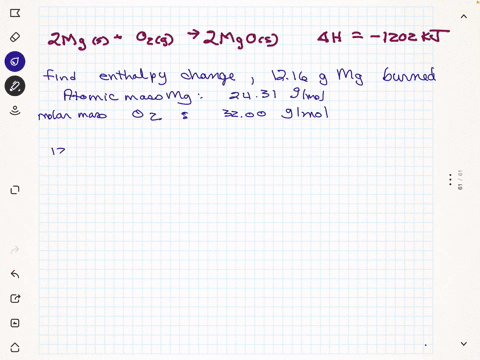 2Mg(s) + O₂(g) → 2MgO(s) ΔH = -1202 kJ
find enthalpy change, 12.16 g Mg burned
Atomic mass Mg: 24.31 g/mol
molar mass O₂ : 32.00 g/mol
12
19 / 19